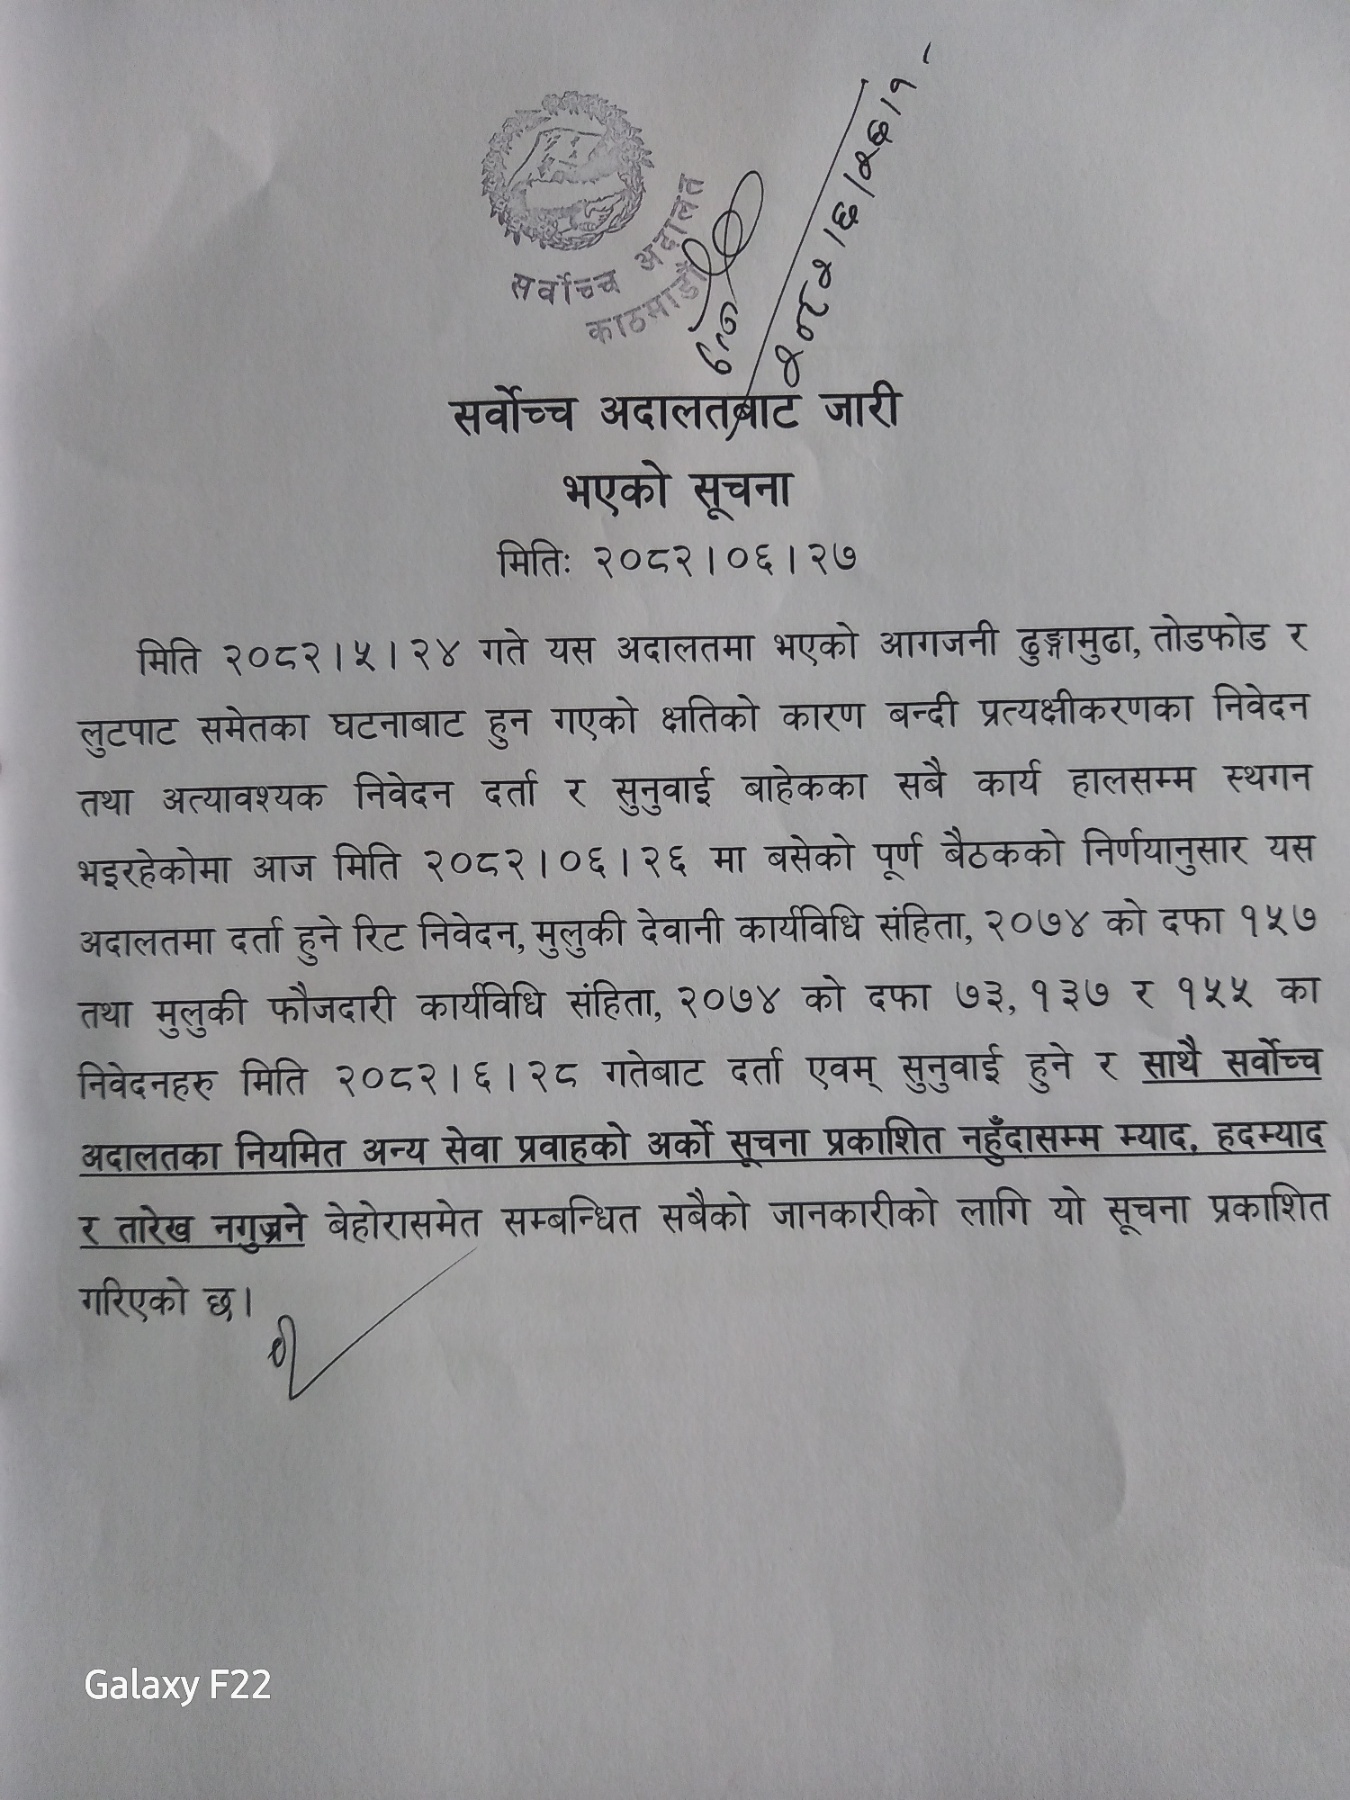 सर्वोच्च अदालत
काठमाडौं
सर्वोच्च अदालतबाट जारी
भएको सूचना
मितिः २०८२।०६।२७
मिति २०८२।५।२४ गते यस अदालतमा भएको आगजनी ढुङ्गामुढा, तोडफोड र
लुटपाट समेतका घटनाबाट हुन गएको क्षतिको कारण बन्दी प्रत्यक्षीकरणका निवेदन
तथा अत्यावश्यक निवेदन दर्ता र सुनुवाई बाहेकका सबै कार्य हालसम्म स्थगन
भइरहेकोमा आज मिति २०८२।०६।२६ मा बसेको पूर्ण बैठकको निर्णयानुसार यस
अदालतमा दर्ता हुने रिट निवेदन, मुलुकी देवानी कार्यविधि संहिता, २०७४ को दफा १५७
तथा मुलुकी फौजदारी कार्यविधि संहिता, २०७४ को दफा ७३, १३७ र १५५ का
निवेदनहरु मिति २०८२।६।२८ गतेबाट दर्ता एवम् सुनुवाई हुने र साथै सर्वोच्च
अदालतका नियमित अन्य सेवा प्रवाहको अर्को सूचना प्रकाशित नहुँदासम्म म्याद, हदम्याद
र तारेख नगुज्रने बेहोरासमेत सम्बन्धित सबैको जानकारीको लागि यो सूचना प्रकाशित
गरिएको छ।
Galaxy F22